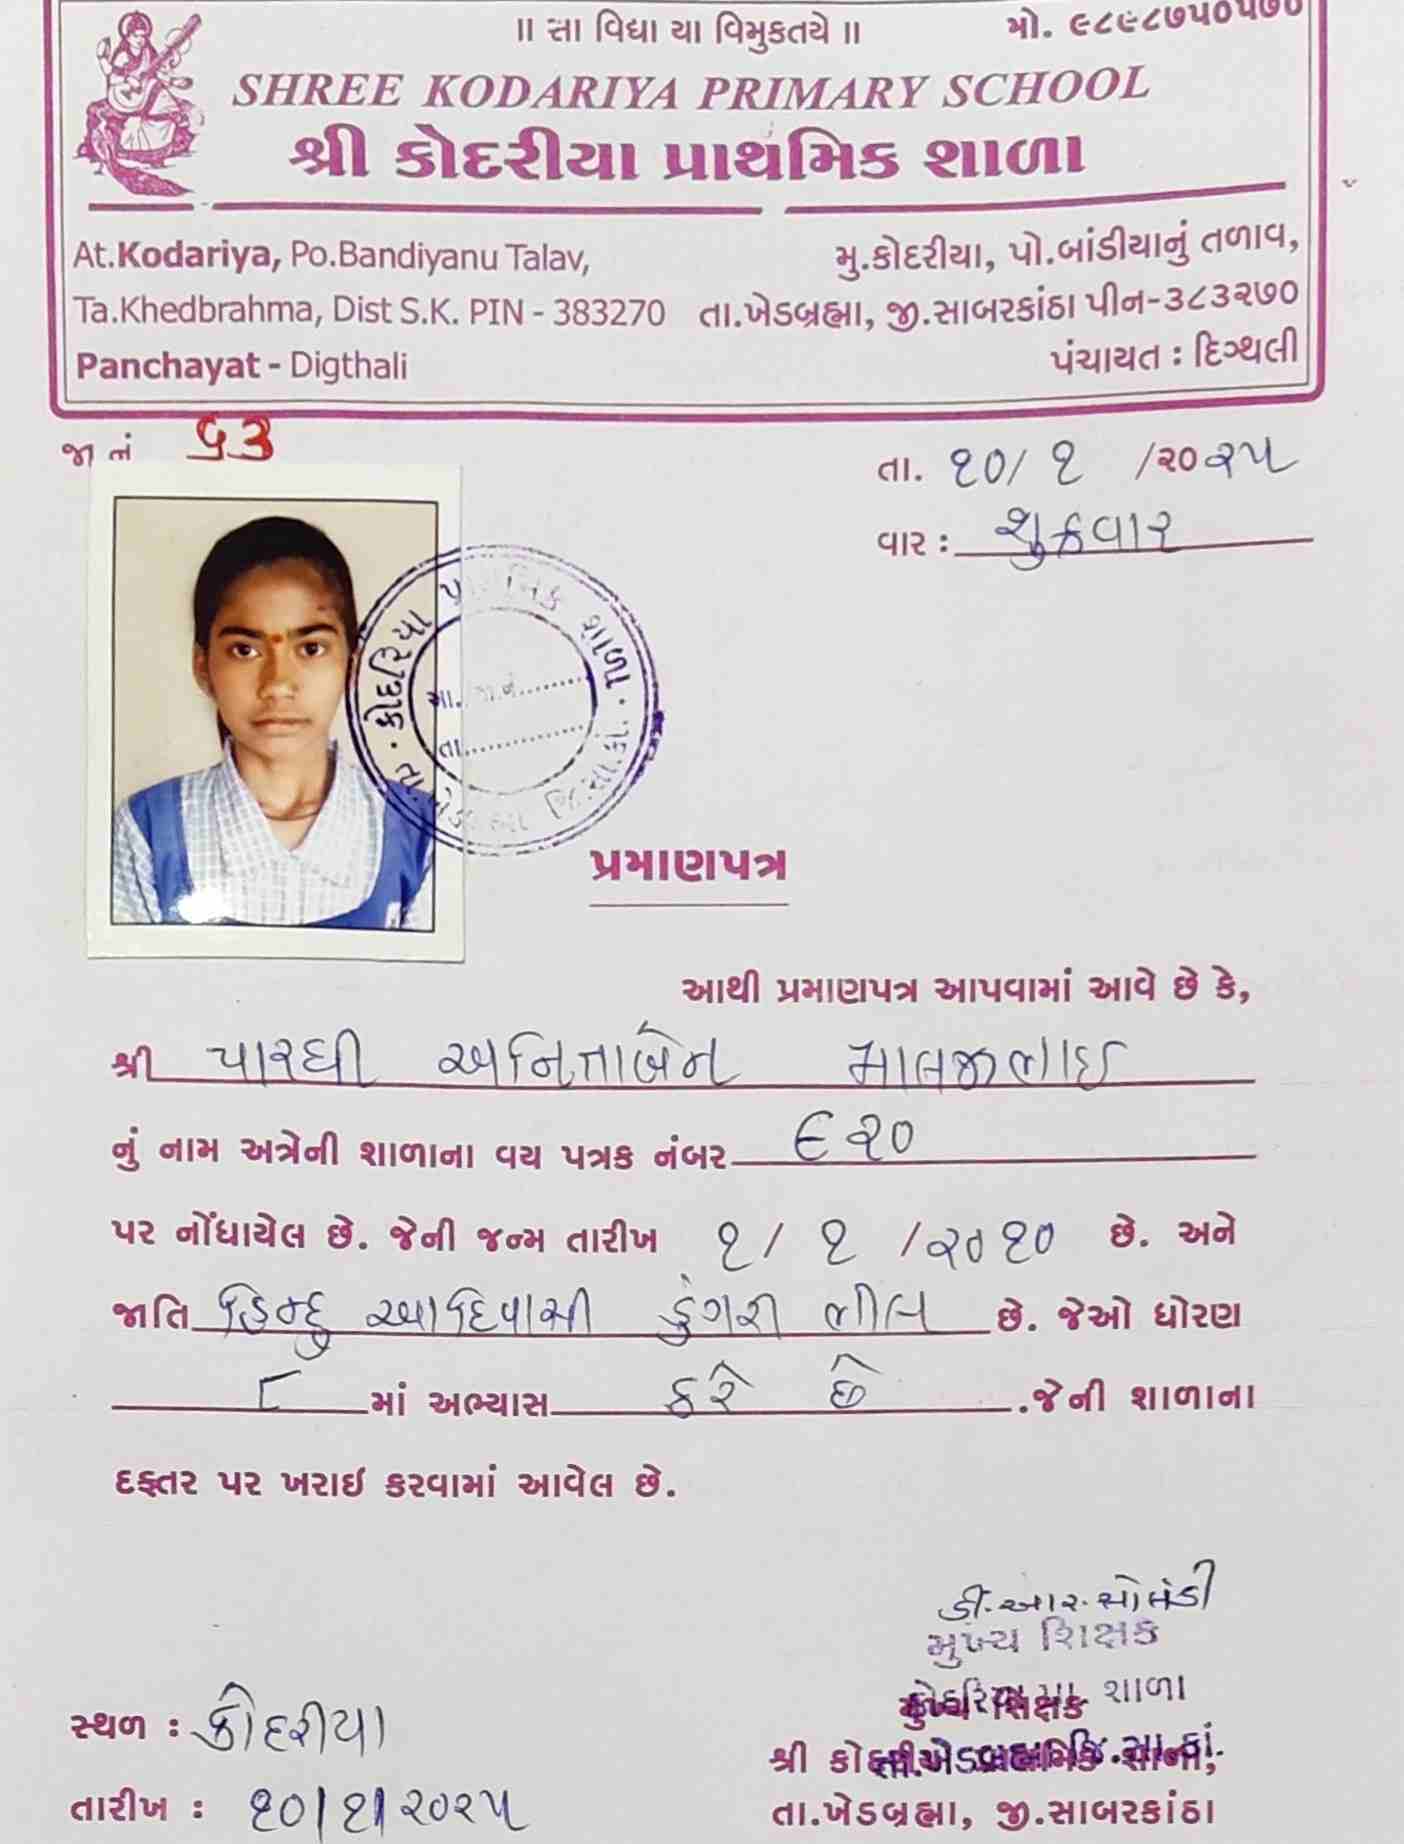 ॥ સા વિદ્યા યા વિમુકતયે ॥
મો. ૯૮૯૮૭૫૦૫૭૦
SHREE KODARIYA PRIMARY SCHOOL
શ્રી કોદરીયા પ્રાથમિક શાળા
At.Kodariya, Po.Bandiyanu Talav,
Ta.Khedbrahma, Dist S.K. PIN - 383270
Panchayat - Digthali
મુ.કોદરીયા, પો.બાંડીયાનું તળાવ,
તા.ખેડબ્રહ્મા, જી.સાબરકાંઠા પીન-૩૮૩૨૭૦
પંચાયત : દિગ્થલી
જા નં ૬૩
તા. ૧૦/ ૧ /૨૦૨૫
વાર : શુક્રવાર
કોદરિયા પ્રાથમિક શાળા
તા.
પ્રમાણપત્ર
આથી પ્રમાણપત્ર આપવામાં આવે છે કે,
શ્રી પારઘી અનિતાબેન માલજીભાઈ
નું નામ અત્રેની શાળાના વય પત્રક નંબર ૯૨૦
પર નોંધાયેલ છે. જેની જન્મ તારીખ ૧/ ૧ /૨૦૧૦ છે. અને
જાતિ હિન્દુ આદિવાસી ડુંગરી ભીલ છે. જેઓ ધોરણ
૮ માં અભ્યાસ કરે છે .જેની શાળાના
દફતર પર ખરાઈ કરવામાં આવેલ છે.
ડી.આર.સોલંકી
મુખ્ય શિક્ષક
શાળા
મુખ્ય શિક્ષક
શ્રી
તા.ખેડબ્રહ્મા, જી.સાબરકાંઠા
સ્થળ : કોદરીયા
તારીખ : ૧૦/૧/૨૦૨૫